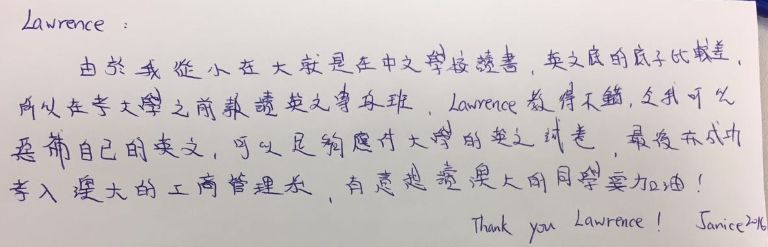 Lawrence :
由於我從小在大就是在中文學校讀書，英文底的底子比較差，
所以在考大學之前報讀英文專攻班，Lawrence教得不錯，令我可以
惡補自己的英文，可以足夠應付大學的英文試卷，最後亦成功
考入澳大的工商管理系，有意想讀澳大的同學要加油！
Thank you Lawrence！ Janice 2016